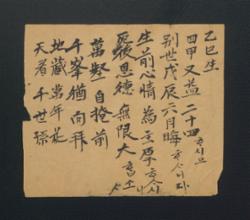 乙巳生
四甲又益二十四
别世戊辰六月晦
生前心情為至厚
死後恩德無限大
萬壑自抢前
千峯猶向拜
地藏萬年花
天着千世孫